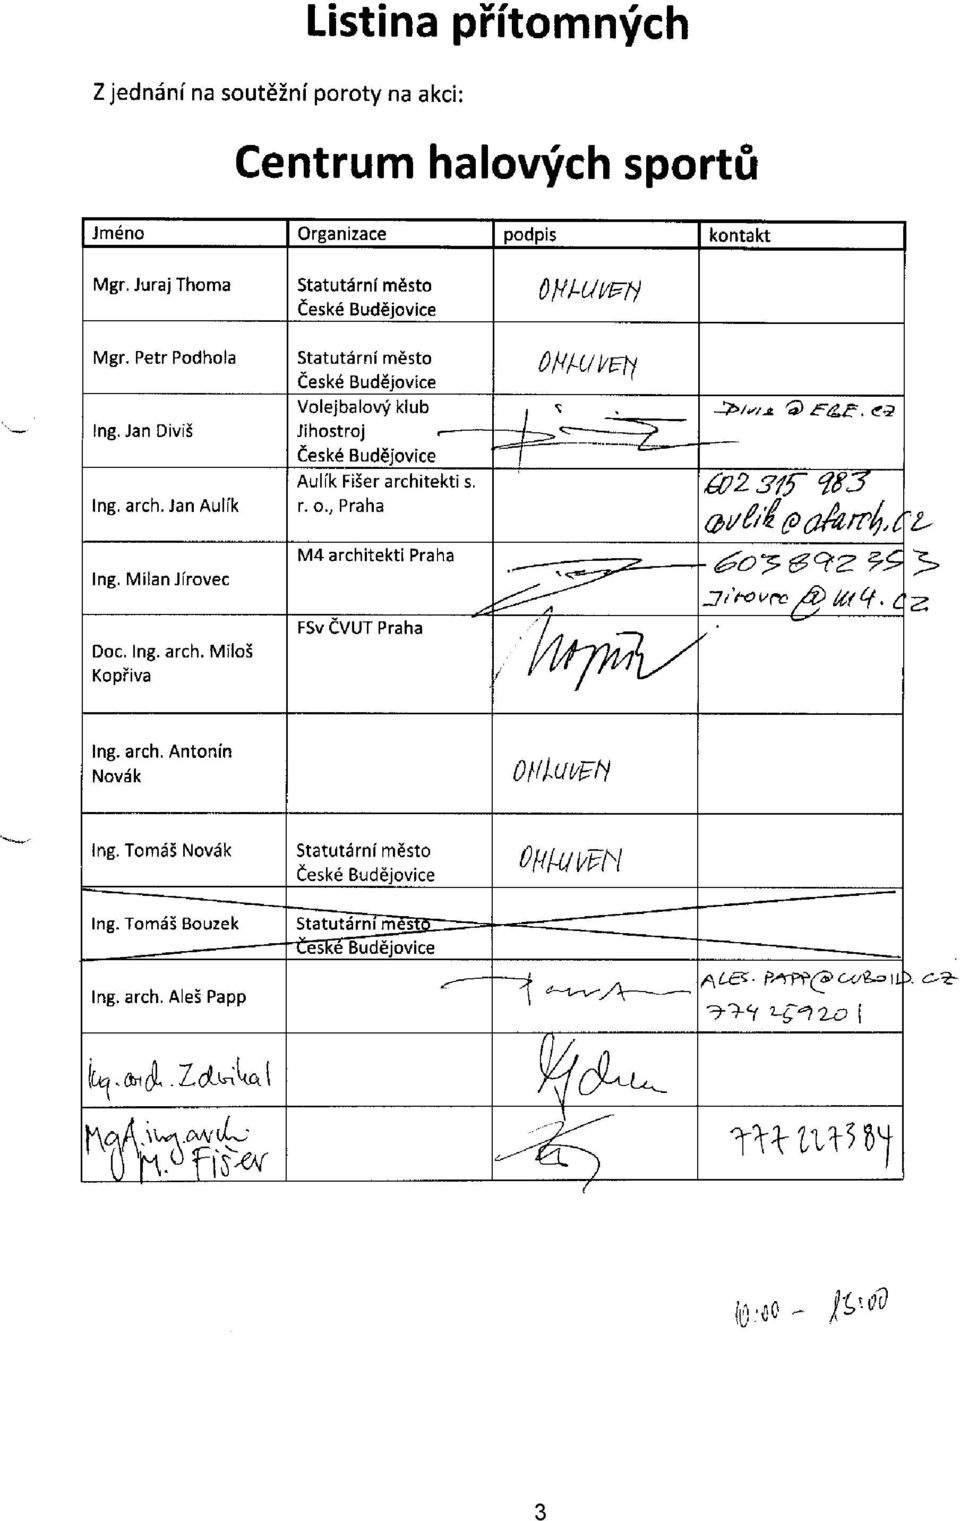 Listina přítomných
Z jednání na soutěžní poroty na akci:
Centrum halových sportů
Jméno Organizace podpis kontakt
Mgr. Juraj Thoma Statutární město OMLUVEN
České Budějovice
Mgr. Petr Podhola Statutární město OMLUVEN
České Budějovice
Volejbalový klub
Ing. Jan Diviš Jihostroj
České Budějovice
Aulík Fišer architekti s. 602 315 983
Ing. arch. Jan Aulík r. o., Praha aulik@afarch.cz
M4 architekti Praha 603 892 353
Ing. Milan Jírovec Jirovec@m4.cz
FSv ČVUT Praha
Doc. Ing. arch. Miloš
Kopřiva
Ing. arch. Antonín
Novák OMLUVEN
Ing. Tomáš Novák Statutární město OMLUVEN
České Budějovice
Ing. Tomáš Bouzek Statutární město
České Budějovice
ALES.PAPP@CUBOID.CZ
Ing. arch. Aleš Papp 774 259201
Ing. arch. Zdvihal
MgA. ing. arch. 777 227384
M. Fišer
10:00 - 15:00
3